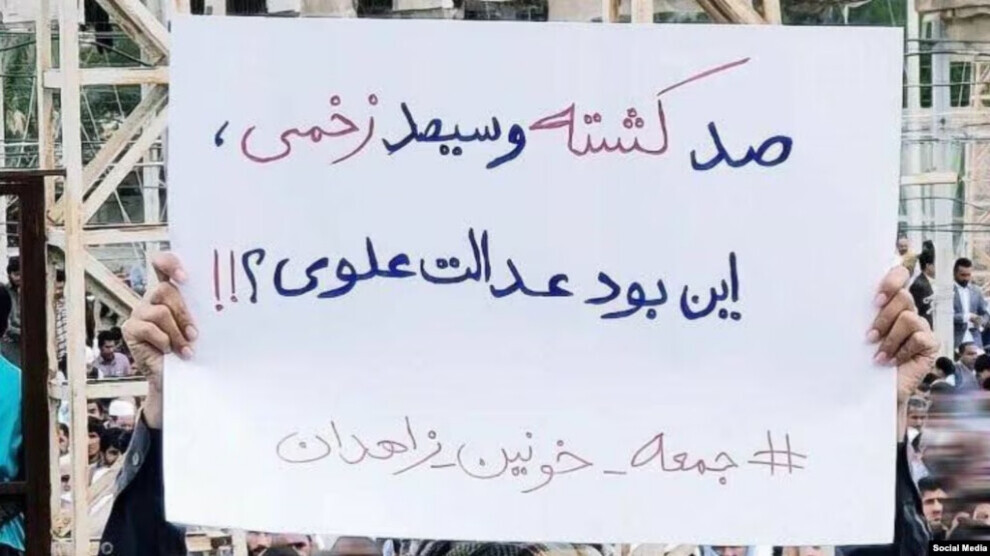 صد کشته و سیصد زخمی،
این بود عدالت علوی؟!!
#جمعه_خونین_زاهدان
Social Media